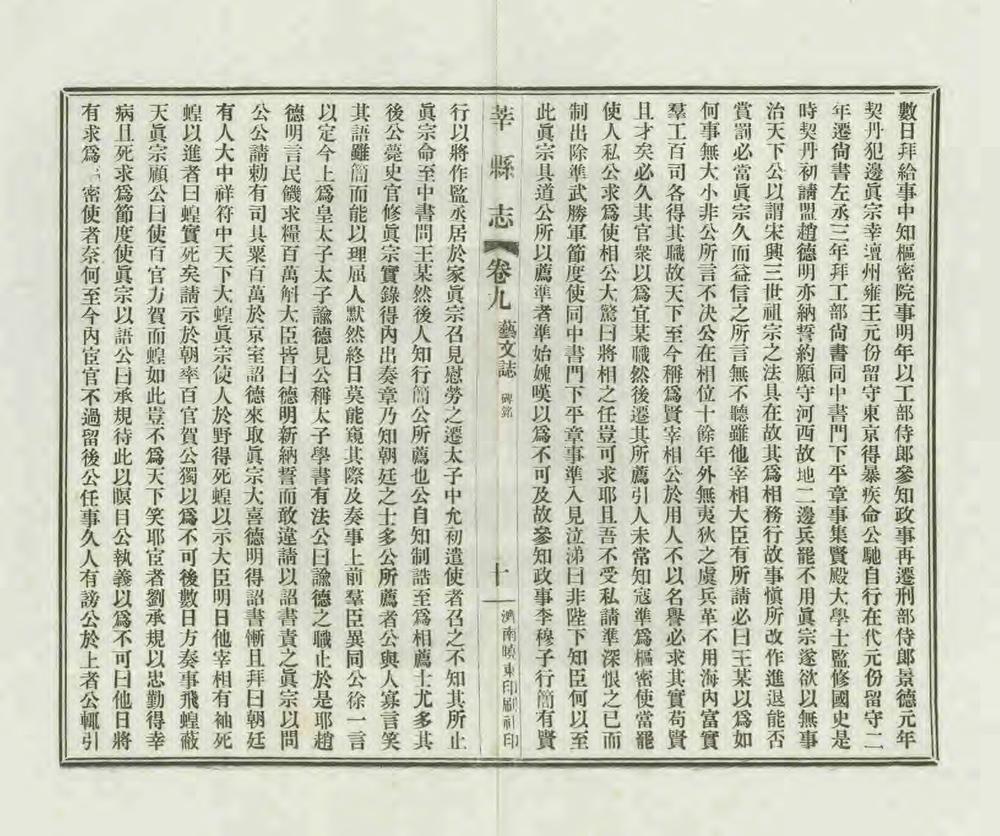 數日拜給事中知樞密院事明年以工部侍郎參知政事再遷刑部侍郎景德元年
契丹犯邊眞宗幸澶州雍王元份留守東京得暴疾命公馳自行在代元份留守二
年遷尙書左丞三年拜工部尙書同中書門下平章事集賢殿大學士監修國史是
時契丹初請盟趙德明亦納誓約願守河西故地二邊兵罷不用眞宗遂欲以無事
治天下公以謂宋興三世祖宗之法具在故其爲相務行故事愼所改作進退能否
賞罰必當眞宗久而益信之所言無不聽雖他宰相大臣有所請必曰王某以爲如
何事無大小非公所言不決公在相位十餘年外無夷狄之虞兵革不用海內富實
羣工百司各得其職故天下至今稱爲賢宰相公於用人不以名譽必求其實苟賢
且才矣必久其官衆以爲宜某職然後遷其所薦引人未常知寇準爲樞密使當罷
使人私公求爲使相公大驚曰將相之任豈可求耶且吾不受私請準深恨之已而
制出除準武勝軍節度使同中書門下平章事準入見泣涕曰非陛下知臣何以至
此眞宗具道公所以薦準者準始媿嘆以爲不可及故參知政事李穆子行簡有賢
莘縣志 卷九 藝文誌 碑銘 十 濟南曉東印刷社印
行以將作監丞居於家眞宗召見慰勞之遷太子中允初遣使者召之不知其所止
眞宗命至中書問王某然後人知行簡公所薦也公自知制誥至爲相薦士尤多其
後公薨史官修眞宗實錄得內出奏章乃知朝廷之士多公所薦者公與人寡言笑
其語雖簡而能以理屈人默然終日莫能窺其際及奏事上前羣臣異同公徐一言
以定今上爲皇太子太子諭德見公稱太子學書有法公曰諭德之職止於是耶趙
德明言民饑求糧百萬斛大臣皆曰德明新納誓而敢違請以詔書責之眞宗以問
公公請勅有司具粟百萬於京室詔德來取眞宗大喜德明得詔書慚且拜曰朝廷
有人大中祥符中天下大蝗眞宗使人於野得死蝗以示大臣明日他宰相有袖死
蝗以進者曰蝗實死矣請示於朝率百官賀公獨以爲不可後數日方奏事飛蝗蔽
天眞宗顧公曰使百官方賀而蝗如此豈不爲天下笑耶宦者劉承規以忠勤得幸
病且死求爲節度使眞宗以語公曰承規待此以瞑目公執義以爲不可曰他日將
有求爲密使者奈何至今內宦官不過留後公任事久人有謗公於上者公輒引